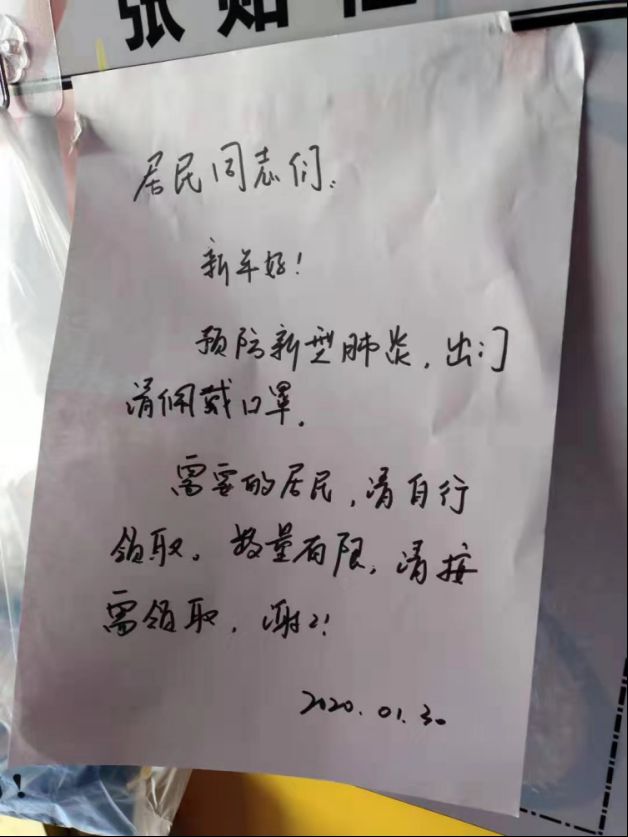 张贴
居民同志们：
新年好！
预防新型肺炎，出门
请佩戴口罩。
需要的居民，请自行
领取。数量有限，请按
需领取，谢谢！
2020.01.30